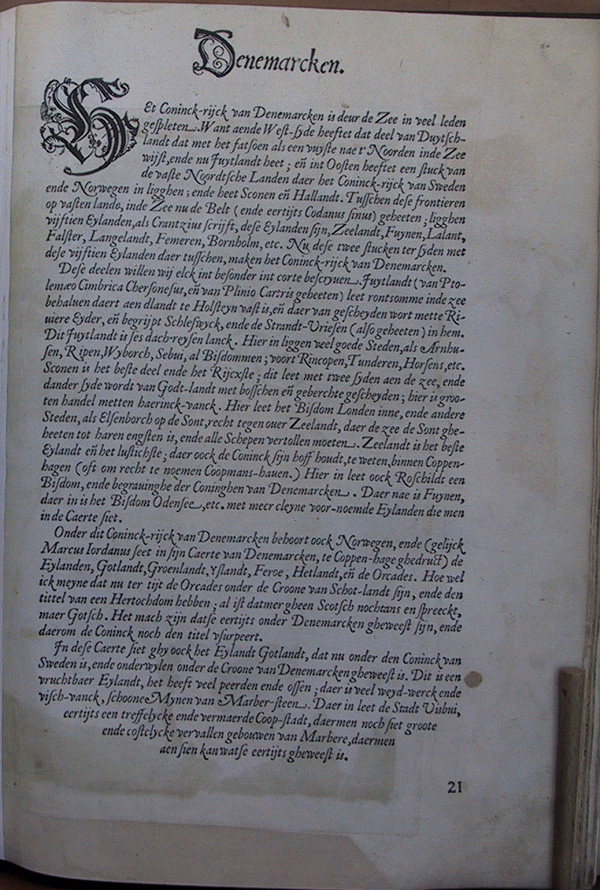 Denemarcken.
HEt Coninck-rijck van Denemarcken is deur de Zee in veel leden
gespleten. Want aende West-syde heeftet dat deel van Duytsch-
landt dat met het fatsoen als een vuyste nae t' Noorden inde Zee
wijst, ende nu Juytlandt heet; eñ int Oosten heeftet een stuck van
de vaste Noordtsche Landen daer het Coninck-rijck van Sweden
ende Norwegen in ligghen; ende heet Sconen eñ Hallandt. Tusschen dese frontieren
op vasten lande, inde Zee nu de Belt (ende eertijts Codanus sinus) geheeten; ligghen
vijftien Eylanden, als Crantzius scrijft, dese Eylanden sijn, Zeelandt, Fuynen, Lalant,
Falster, Langelandt, Femeren, Bornholm, etc. Nu dese twee stucken ter syden met
dese vijftien Eylanden daer tusschen, maken het Coninck-rijck van Denemarcken.
Dese deelen willen wij elck int besonder int corte bescryuen. Juytlandt (van Pto-
lemæo Cimbrica Chersonesus, eñ van Plinio Cartris geheeten) leet rontsomme inde zee
behaluen daert aen dlandt te Holsteyn vast is, eñ daer van gescheyden wort mette Ri-
uiere Eyder, eñ begrijpt Schleswyck, ende de Strandt-Vriesen (also geheeten) in hem.
Dit Juytlandt is ses dach-reysen lanck. Hier in liggen veel goede Steden, als Arnhu-
sen, Ripen, Wyborch, Sebui, al Bisdommen; voort Rincopen, Tunderen, Horsens, etc.
Sconen is het beste deel ende het Rijcxste; dit leet met twee syden aen de zee, ende
dander syde wordt van Godt-landt met bosschen eñ geberchte gescheyden; hier is groo-
ten handel metten haerinck-vanck. Hier leet het Bisdom Londen inne, ende andere
Steden, als Elsenborch op de Sont, recht tegen ouer Zeelandt, daer de zee de Sont ghe-
heeten tot haren engsten is, ende alle Schepen vertollen moeten. Zeelandt is het beste
Eylandt eñ het lustichste; daer oock de Coninck sijn hoff houdt, te weten, binnen Coppen-
hagen (oft om recht te noemen Coopmans-hauen.) Hier in leet oock Roschildt een
Bisdom, ende begrauinghe der Coninghen van Denemarcken. Daer nae is Fuynen,
daer in is het Bisdom Odensee, etc. met meer cleyne voor-noemde Eylanden die men
in de Caerte siet.
Onder dit Coninck-rijck van Denemarcken behoort oock Norwegen, ende (gelijck
Marcus Iordanus seet in sijn Caerte van Denemarcken, te Coppen-hage ghedruct) de
Eylanden, Gotlandt, Groenlandt, Yslandt, Feroe, Hetlandt, eñ de Orcades. Hoe wel
ick meyne dat nu ter tijt de Orcades onder de Croone van Schot-landt sijn, ende den
tittel van een Hertochdom hebben; al ist datmer gheen Scotsch nochtans en spreeckt,
maer Gotsch. Het mach zijn datse eertijts onder Denemarcken gheweest sijn, ende
daerom de Coninck noch den titel vsurpeert.
In dese Caerte siet ghy oock het Eylandt Gotlandt, dat nu onder den Coninck van
Sweden is, ende onderwylen onder de Croone van Denemarcken gheweest is. Dit is een
vruchtbaer Eylandt, het heeft veel peerden ende ossen; daer is veel weyd-werck ende
visch-vanck, schoone Mynen van Marber-steen. Daer in leet de Stadt Uisbui,
eertijts een treffelycke ende vermaerde Coop-stadt, daermen noch siet groote
ende costelycke vervallen gebouwen van Marbere, daermen
aen sien kan watse eertijts gheweest is.
21